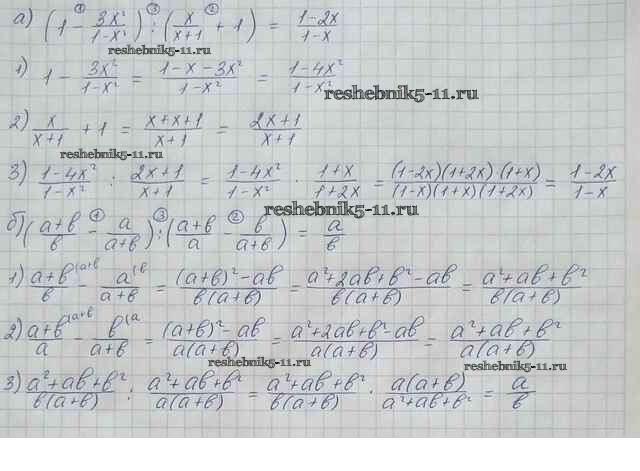 а) (1 - 3x²/(1-x²)) : (x/(x+1) + 1) = (1-2x)/(1-x)
① ③ ②
reshebnik5-11.ru
1) 1 - 3x²/(1-x²) = (1-x-3x²)/(1-x²) = (1-4x²)/(1-x²)
reshebnik5-11.ru
2) x/(x+1) + 1 = (x+x+1)/(x+1) = (2x+1)/(x+1)
reshebnik5-11.ru
3) (1-4x²)/(1-x²) : (2x+1)/(x+1) = (1-4x²)/(1-x²) · (1+x)/(1+2x) = (1-2x)(1+2x)·(1+x)/(1-x)(1+x)(1+2x) = (1-2x)/(1-x)
reshebnik5-11.ru
б) ((a+b)/b - a/(a+b)) : ((a+b)/a - b/(a+b)) = a/b
① ③ ②
1) (a+b)/b (a+b - a/(a+b) (b = ((a+b)²-ab)/(b(a+b)) = (a²+2ab+b²-ab)/(b(a+b)) = (a²+ab+b²)/(b(a+b))
2) (a+b)/a (a+b - b/(a+b) (a = ((a+b)²-ab)/(a(a+b)) = (a²+2ab+b²-ab)/(a(a+b)) = (a²+ab+b²)/(a(a+b))
reshebnik5-11.ru
reshebnik5-11.ru
3) (a²+ab+b²)/(b(a+b)) : (a²+ab+b²)/(a(a+b)) = (a²+ab+b²)/(b(a+b)) · a(a+b)/(a²+ab+b²) = a/b